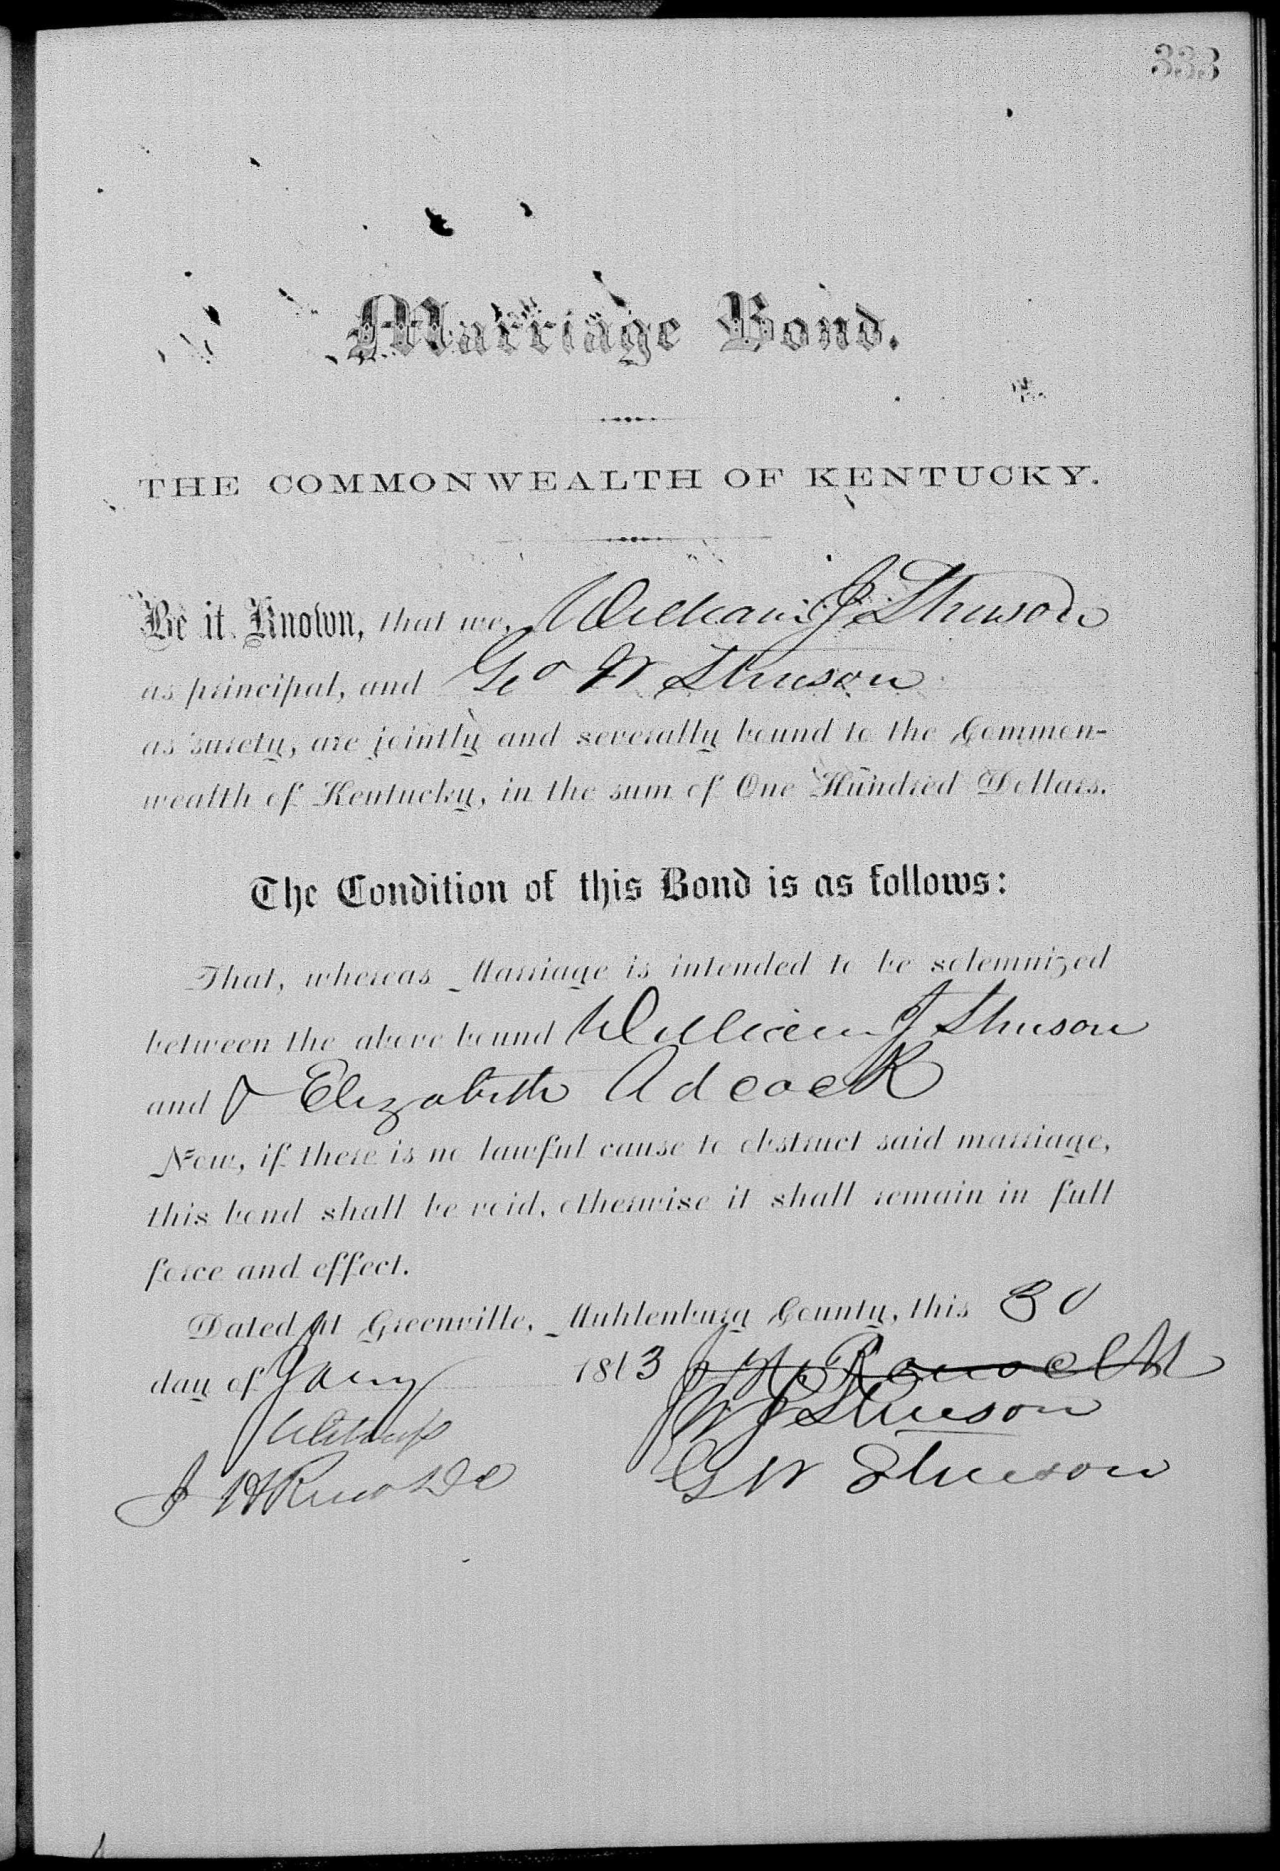 333
Marriage Bond.
THE COMMONWEALTH OF KENTUCKY.
Be it Known, that we, William J Stinson
as principal, and Geo W Stinson
as surety, are jointly and severally bound to the Common-
wealth of Kentucky, in the sum of One Hundred Dollars.
The Condition of this Bond is as follows:
That, whereas Marriage is intended to be solemnized
between the above bound William J Stinson
and Elizabeth Adcock
Now, if there is no lawful cause to obstruct said marriage,
this bond shall be void, otherwise it shall remain in full
force and effect.
Dated at Greenville, Muhlenburg County, this 30
day of Jany 1873
W J Stinson
G W Stinson